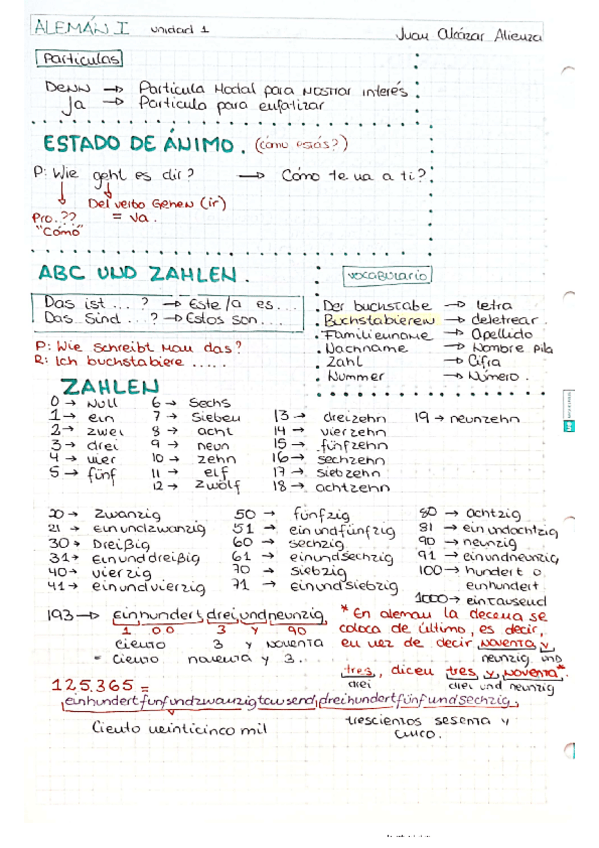 ALEMÁN I unidad 1
Juan Alcázar Alienza
Partículas
Denn → Partícula Modal para mostrar interés.
Ja → Partícula para enfatizar
ESTADO DE ÁNIMO. (cómo estás?)
P: Wie geht es dir? → Cómo te va a ti?
Del verbo Gehen (ir)
Pro.?? = va.
"Cómo"
ABC UND ZAHLEN.
Das ist ... ? → Este/a es...
Das Sind ... ? → Estos son...
P: Wie schreibt man das?
R: Ich buchstabiere .....
vocabulario
Der buchstabe → letra
Buchstabieren → deletrear.
Familienname → Apellido
Nachname → Nombre pila
Zahl → Cifra
Nummer → Número.
ZAHLEN
0 → Null 6 → Sechs
1 → ein 7 → Sieben 13 → dreizehn 19 → neunzehn
2 → zwei 8 → acht 14 → vierzehn
3 → drei 9 → neun 15 → fünfzehn
4 → vier 10 → zehn 16 → sechzehn
5 → fünf 11 → elf 17 → siebzehn
12 → zwölf 18 → achtzehn
20 → zwanzig 50 → fünfzig 80 → achtzig
21 → einundzwanzig 51 → einundfünfzig 81 → einundachtzig
30 → Dreißig 60 → sechzig 90 → neunzig
31 → Einunddreißig 61 → einundsechzig 91 → einundneunzig
40 → vierzig 70 → siebzig 100 → hundert o
41 → einundvierzig 71 → einundsiebzig einhundert
1000 → eintausend
193 → einhundertdreiundneunzig
1 00 3 y 90
ciento 3 y noventa
= ciento noventa y 3...
* En alemán la decena se
coloca de último, es decir,
en vez de decir noventa y
neunzig und
tres, dicen tres y noventa*
drei drei und neunzig
125.365 =
einhundertfunfundzwanzigtausend,dreihundertfünfundsechzig,
Ciento veinticinco mil
trescientos sesenta y
cinco.